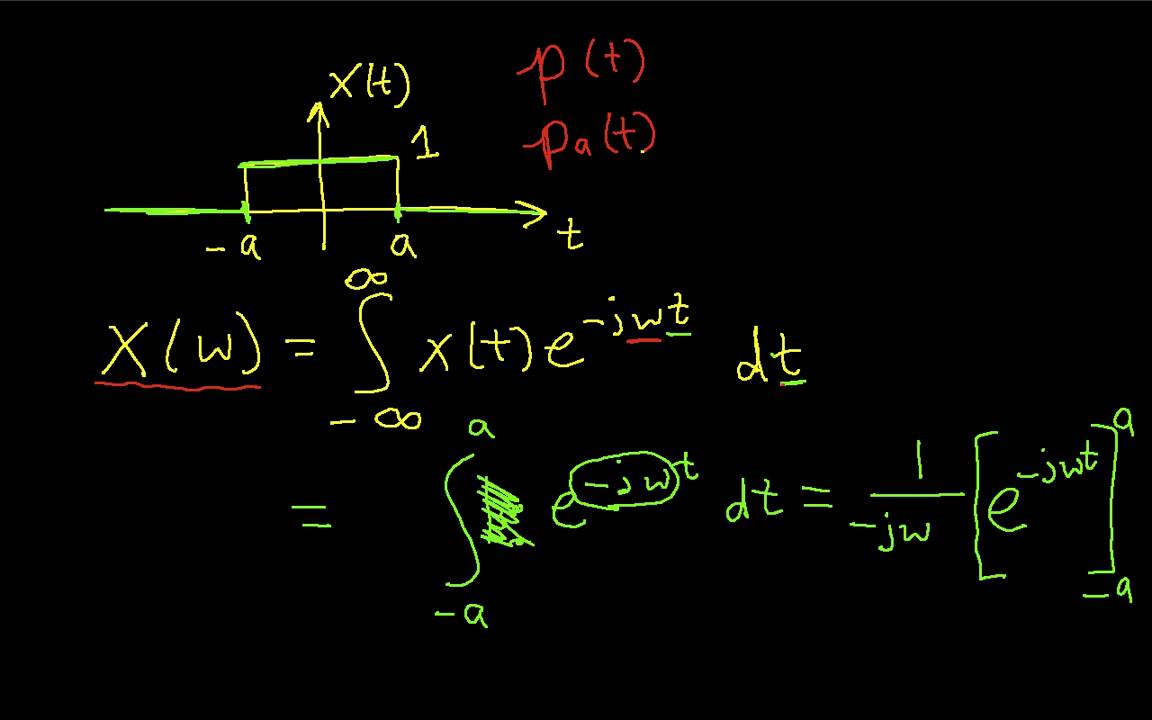 p(t)
x(t)
1
p_a(t)
-a a t
X(w) = ∫_{-∞}^{∞} x(t) e^{-jwt} dt
= ∫_{-a}^{a} e^{-jwt} dt = \frac{1}{-jw} [e^{-jwt}]_{-a}^{a}